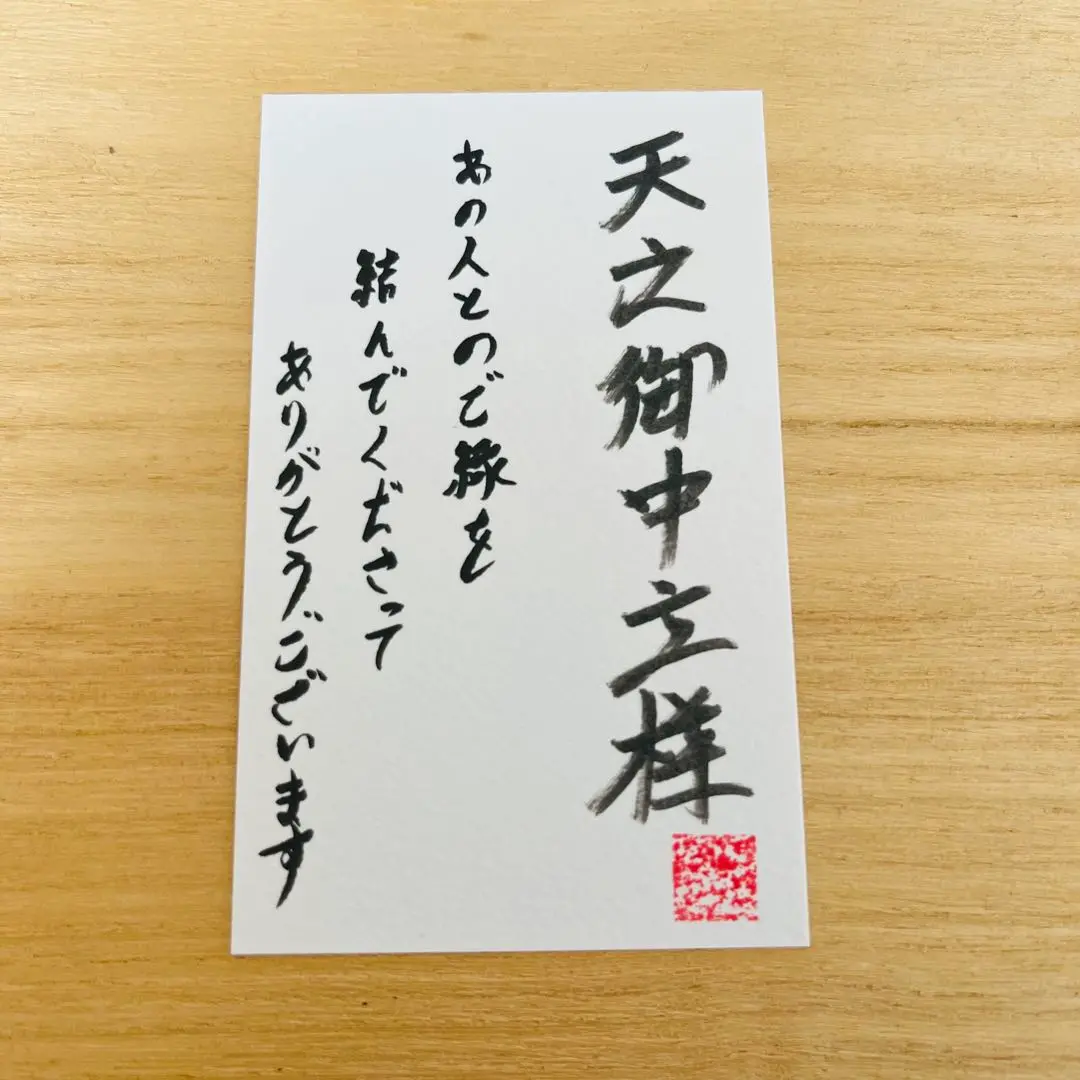 天之御中主様
あの人とのご縁を
結んでくださって
ありがとうございます